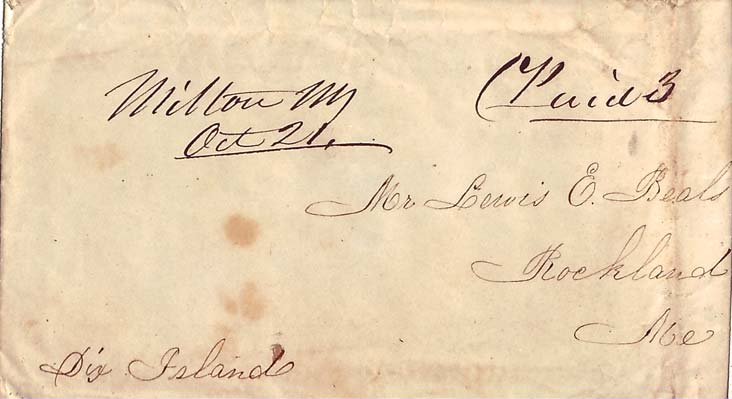 Milton
Oct 21,
Paid 3
Mr Lewis E. Beals
Rockland
Me
Dix Island